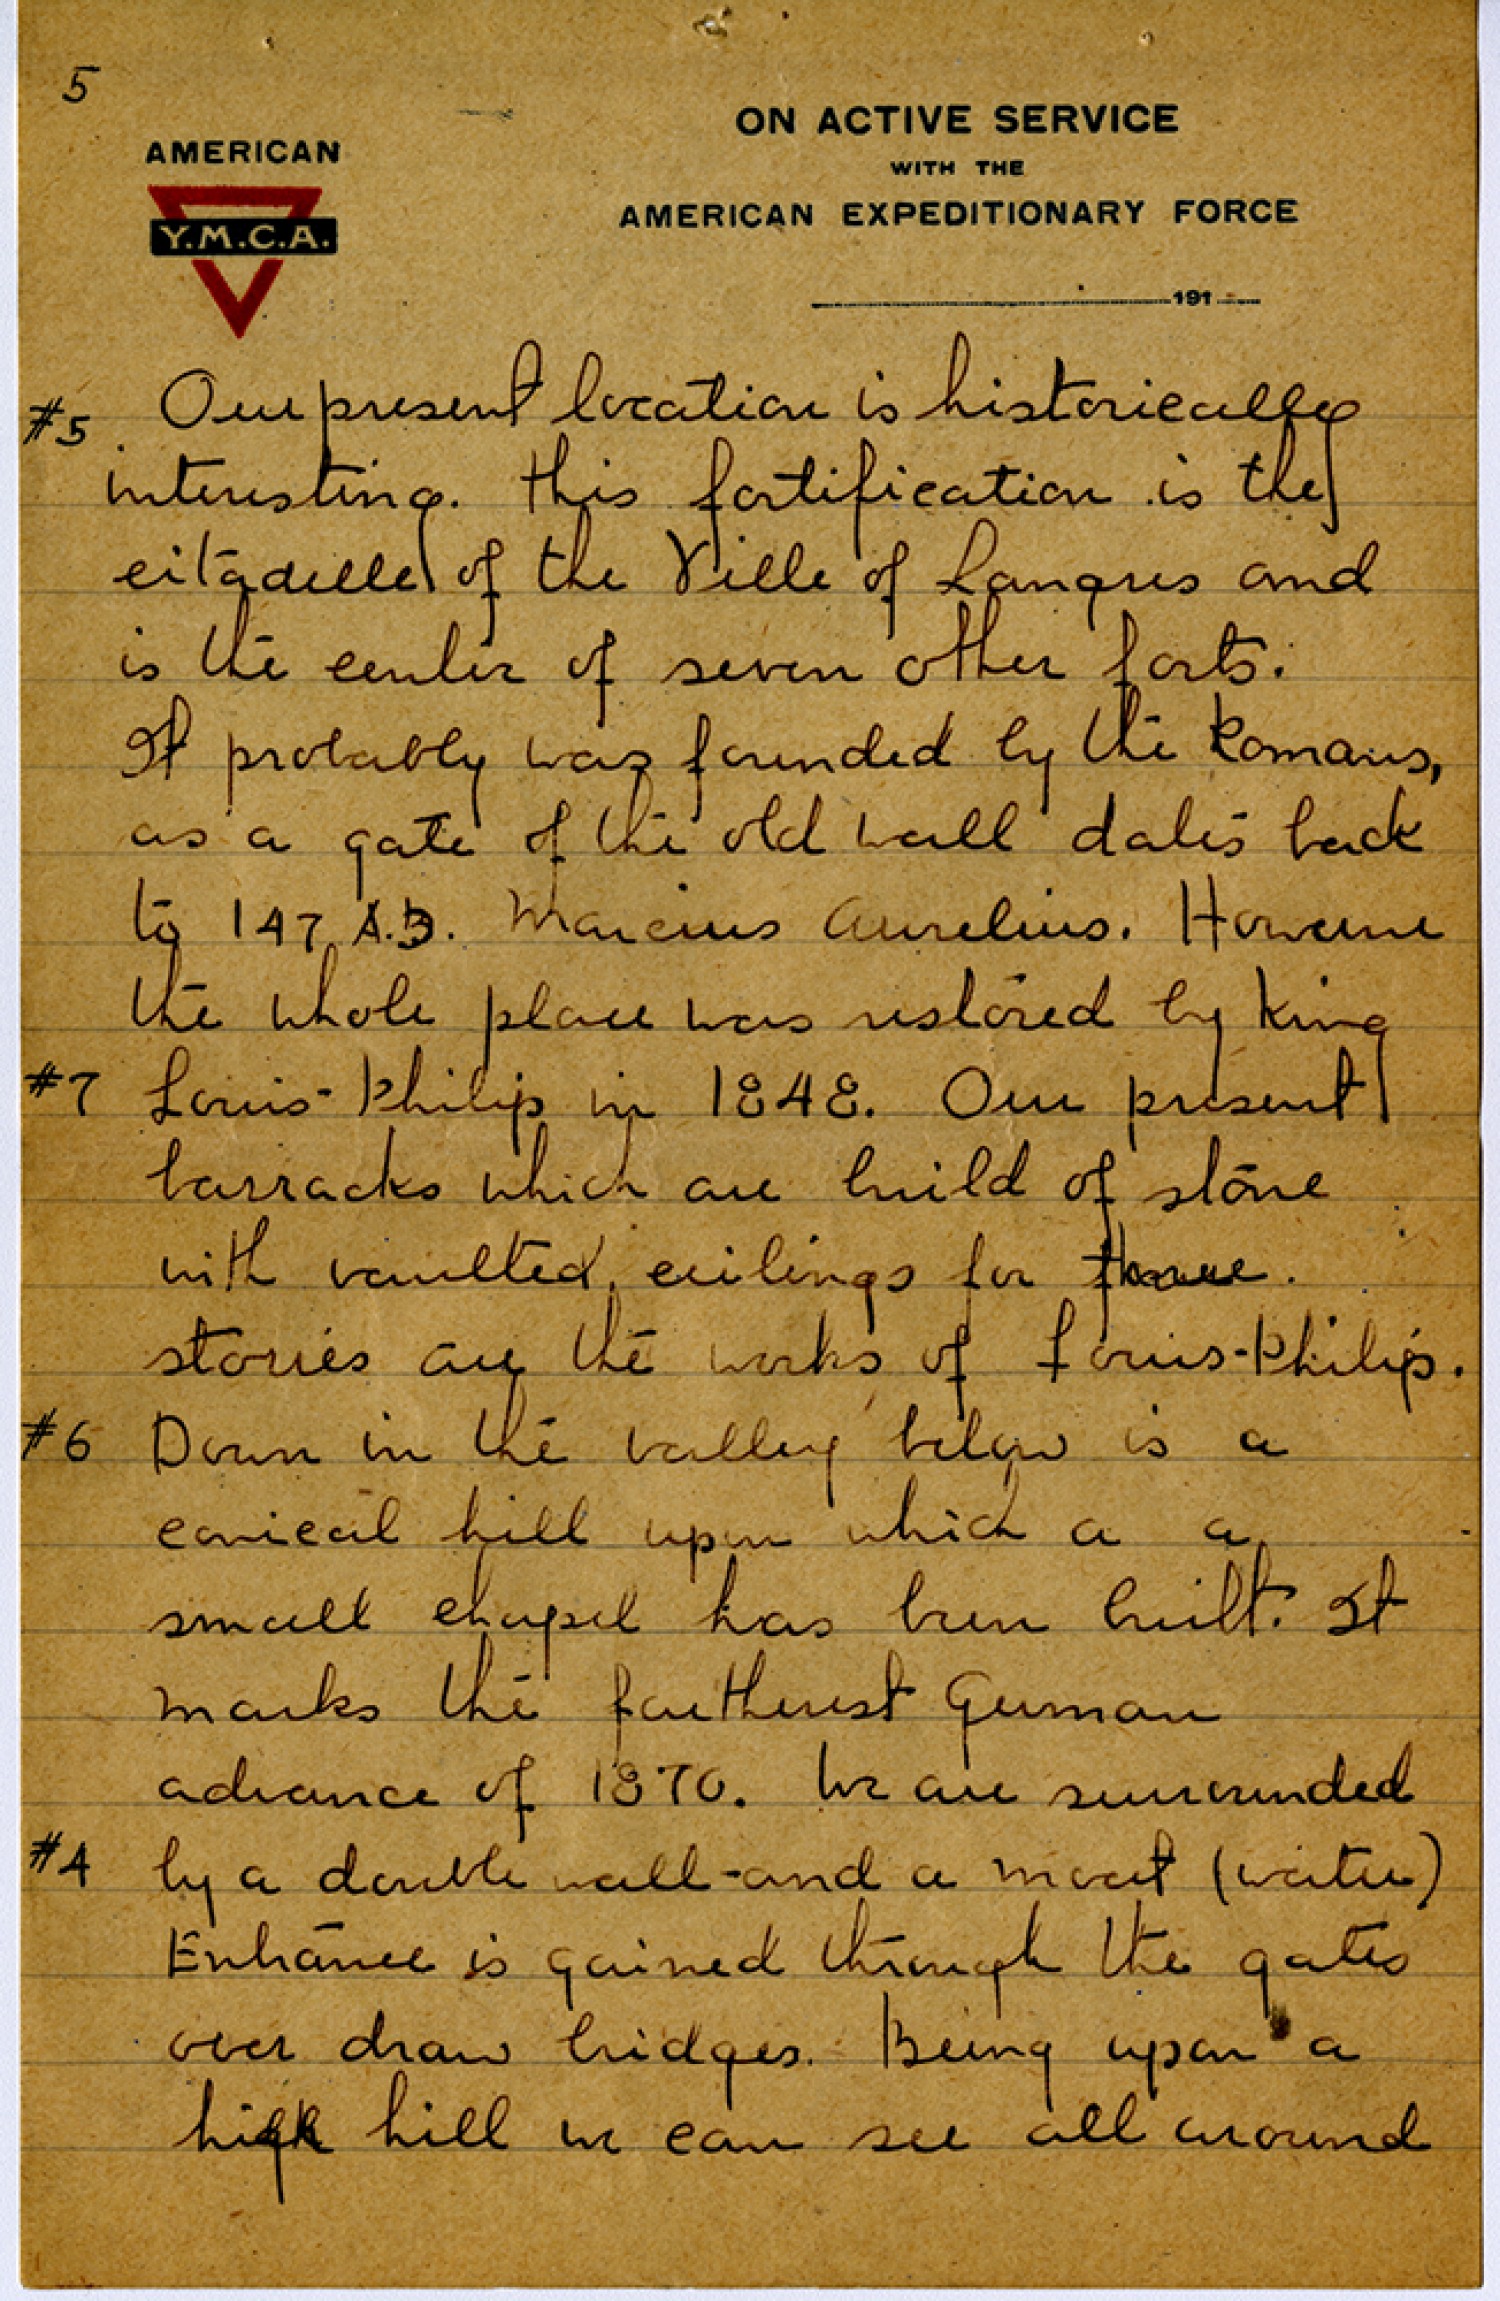 5
AMERICAN
Y.M.C.A.
ON ACTIVE SERVICE
WITH THE
AMERICAN EXPEDITIONARY FORCE
191
#5 Our present location is historically
interesting. This fortification is the
citadelle of the Ville of Langres and
is the center of seven other forts.
It probably was founded by the Romans,
as a gate of the old wall dates back
to 147 A.D. Marcius Aurelius. However
the whole place was restored by King
#7 Louis-Philip in 1848. Our present
barracks which are build of stone
with vaulted ceilings for three.
stories are the works of Louis-Philip.
#6 Down in the valley below is a
conical hill upon which a a
small chapel has been built. It
marks the fartherest German
advance of 1870. We are surrounded
#4 by a double wall-and a moat (water)
Entrance is gained through the gates
over draw bridges. Being upon a
high hill we can see all around